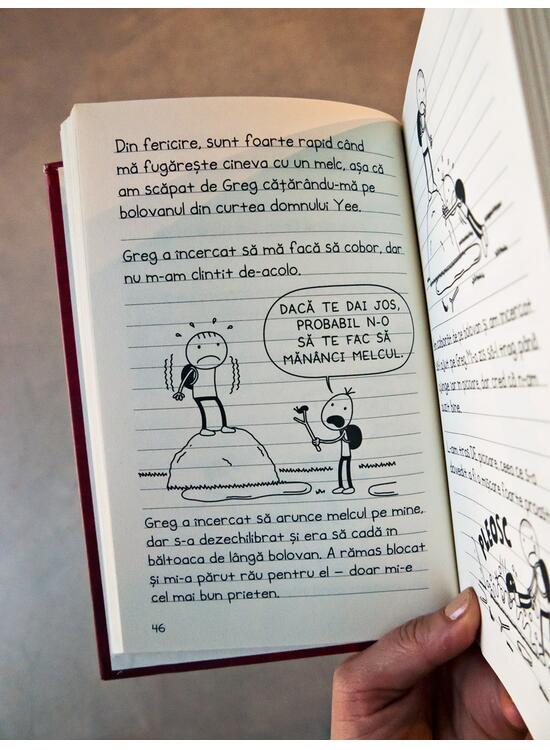 Din fericire, sunt foarte rapid când
mă fugărește cineva cu un melc, așa că
am scăpat de Greg cățărându-mă pe
bolovanul din curtea domnului Yee.
Greg a încercat să mă facă să cobor, dar
nu m-am clintit de-acolo.
DACĂ TE DAI JOS,
PROBABIL N-O
SĂ TE FAC SĂ
MĂNÂNCI MELCUL.
Greg a încercat să arunce melcul pe mine,
dar s-a dezechilibrat și era să cadă în
băltoaca de lângă bolovan. A rămas blocat
și mi-a părut rău pentru el – doar mi-e
cel mai bun prieten.
46
de pe bolovan și am încercat
pe Greg.
în picioare, dar cred că n-am
bine.
tras DE picioare, ceea ce s-a
a fi o mișcare foarte proastă
PLEOSC